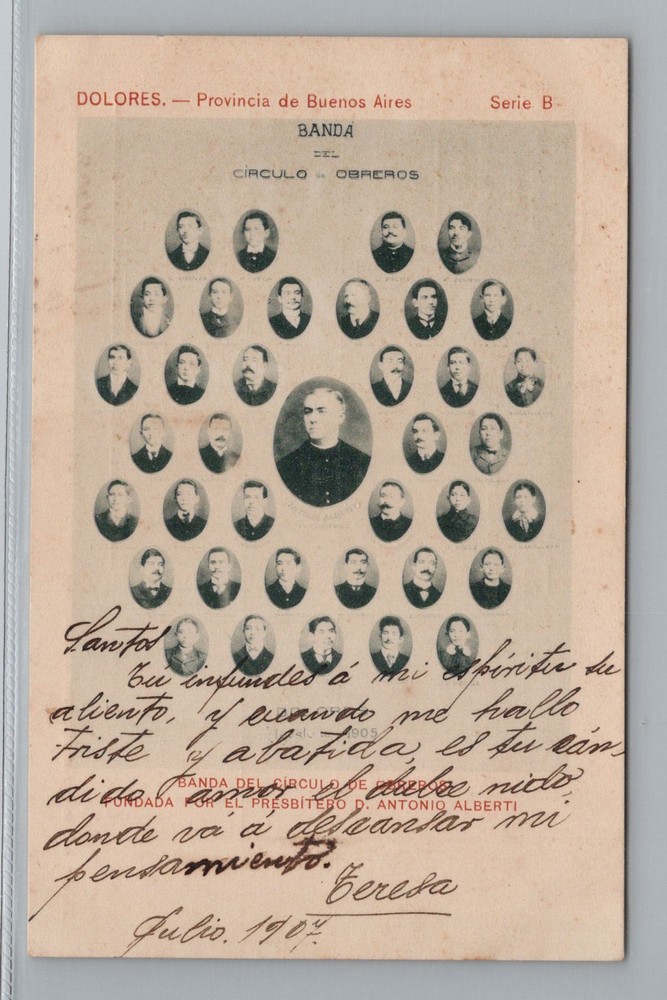 DOLORES. — Provincia de Buenos Aires Serie B
BANDA
DEL
CÍRCULO DE OBREROS
Santos
Tú infundes á mi espíritu su
aliento, y cuando me hallo
1905
triste y abatida, es tu cán-
dido amor el dulce nido,
BANDA DEL CÍRCULO DE OBREROS
FUNDADA POR EL PRESBÍTERO D. ANTONIO ALBERTI
donde vá á descansar mi
pensamiento.
Teresa
Julio. 1907.